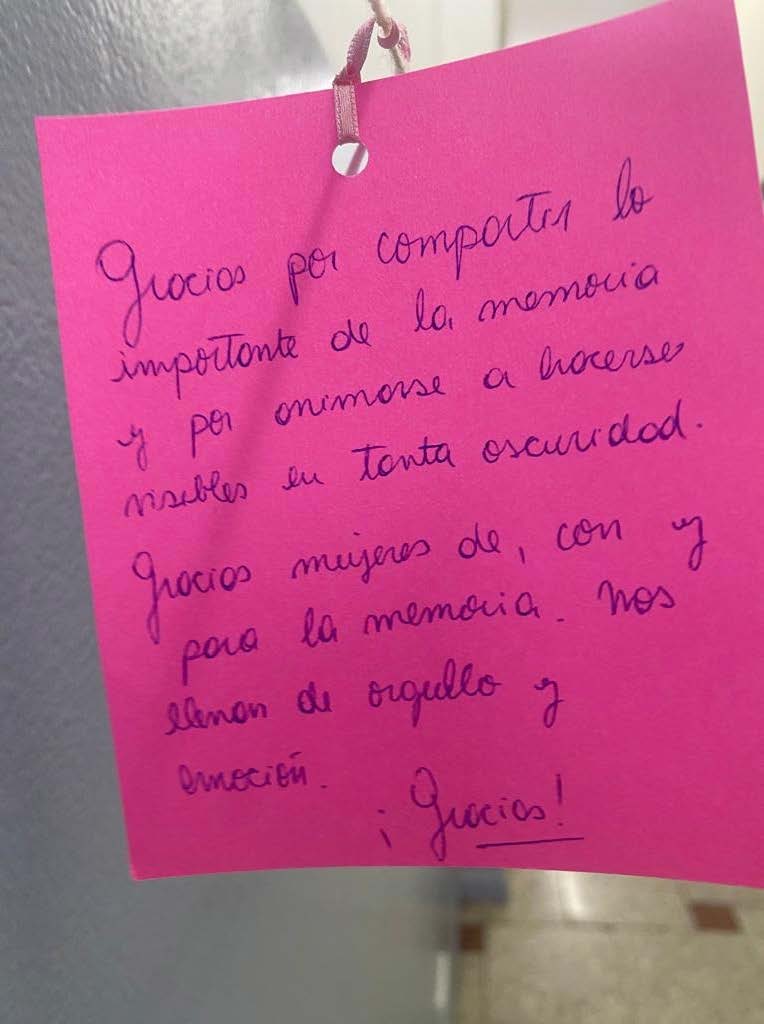 Gracias por compartir lo
importante de la memoria
y por animarse a hacerse
visibles en tanta oscuridad.
Gracias mujeres de, con y
para la memoria. Nos
llenan de orgullo y
emoción.
¡Gracias!